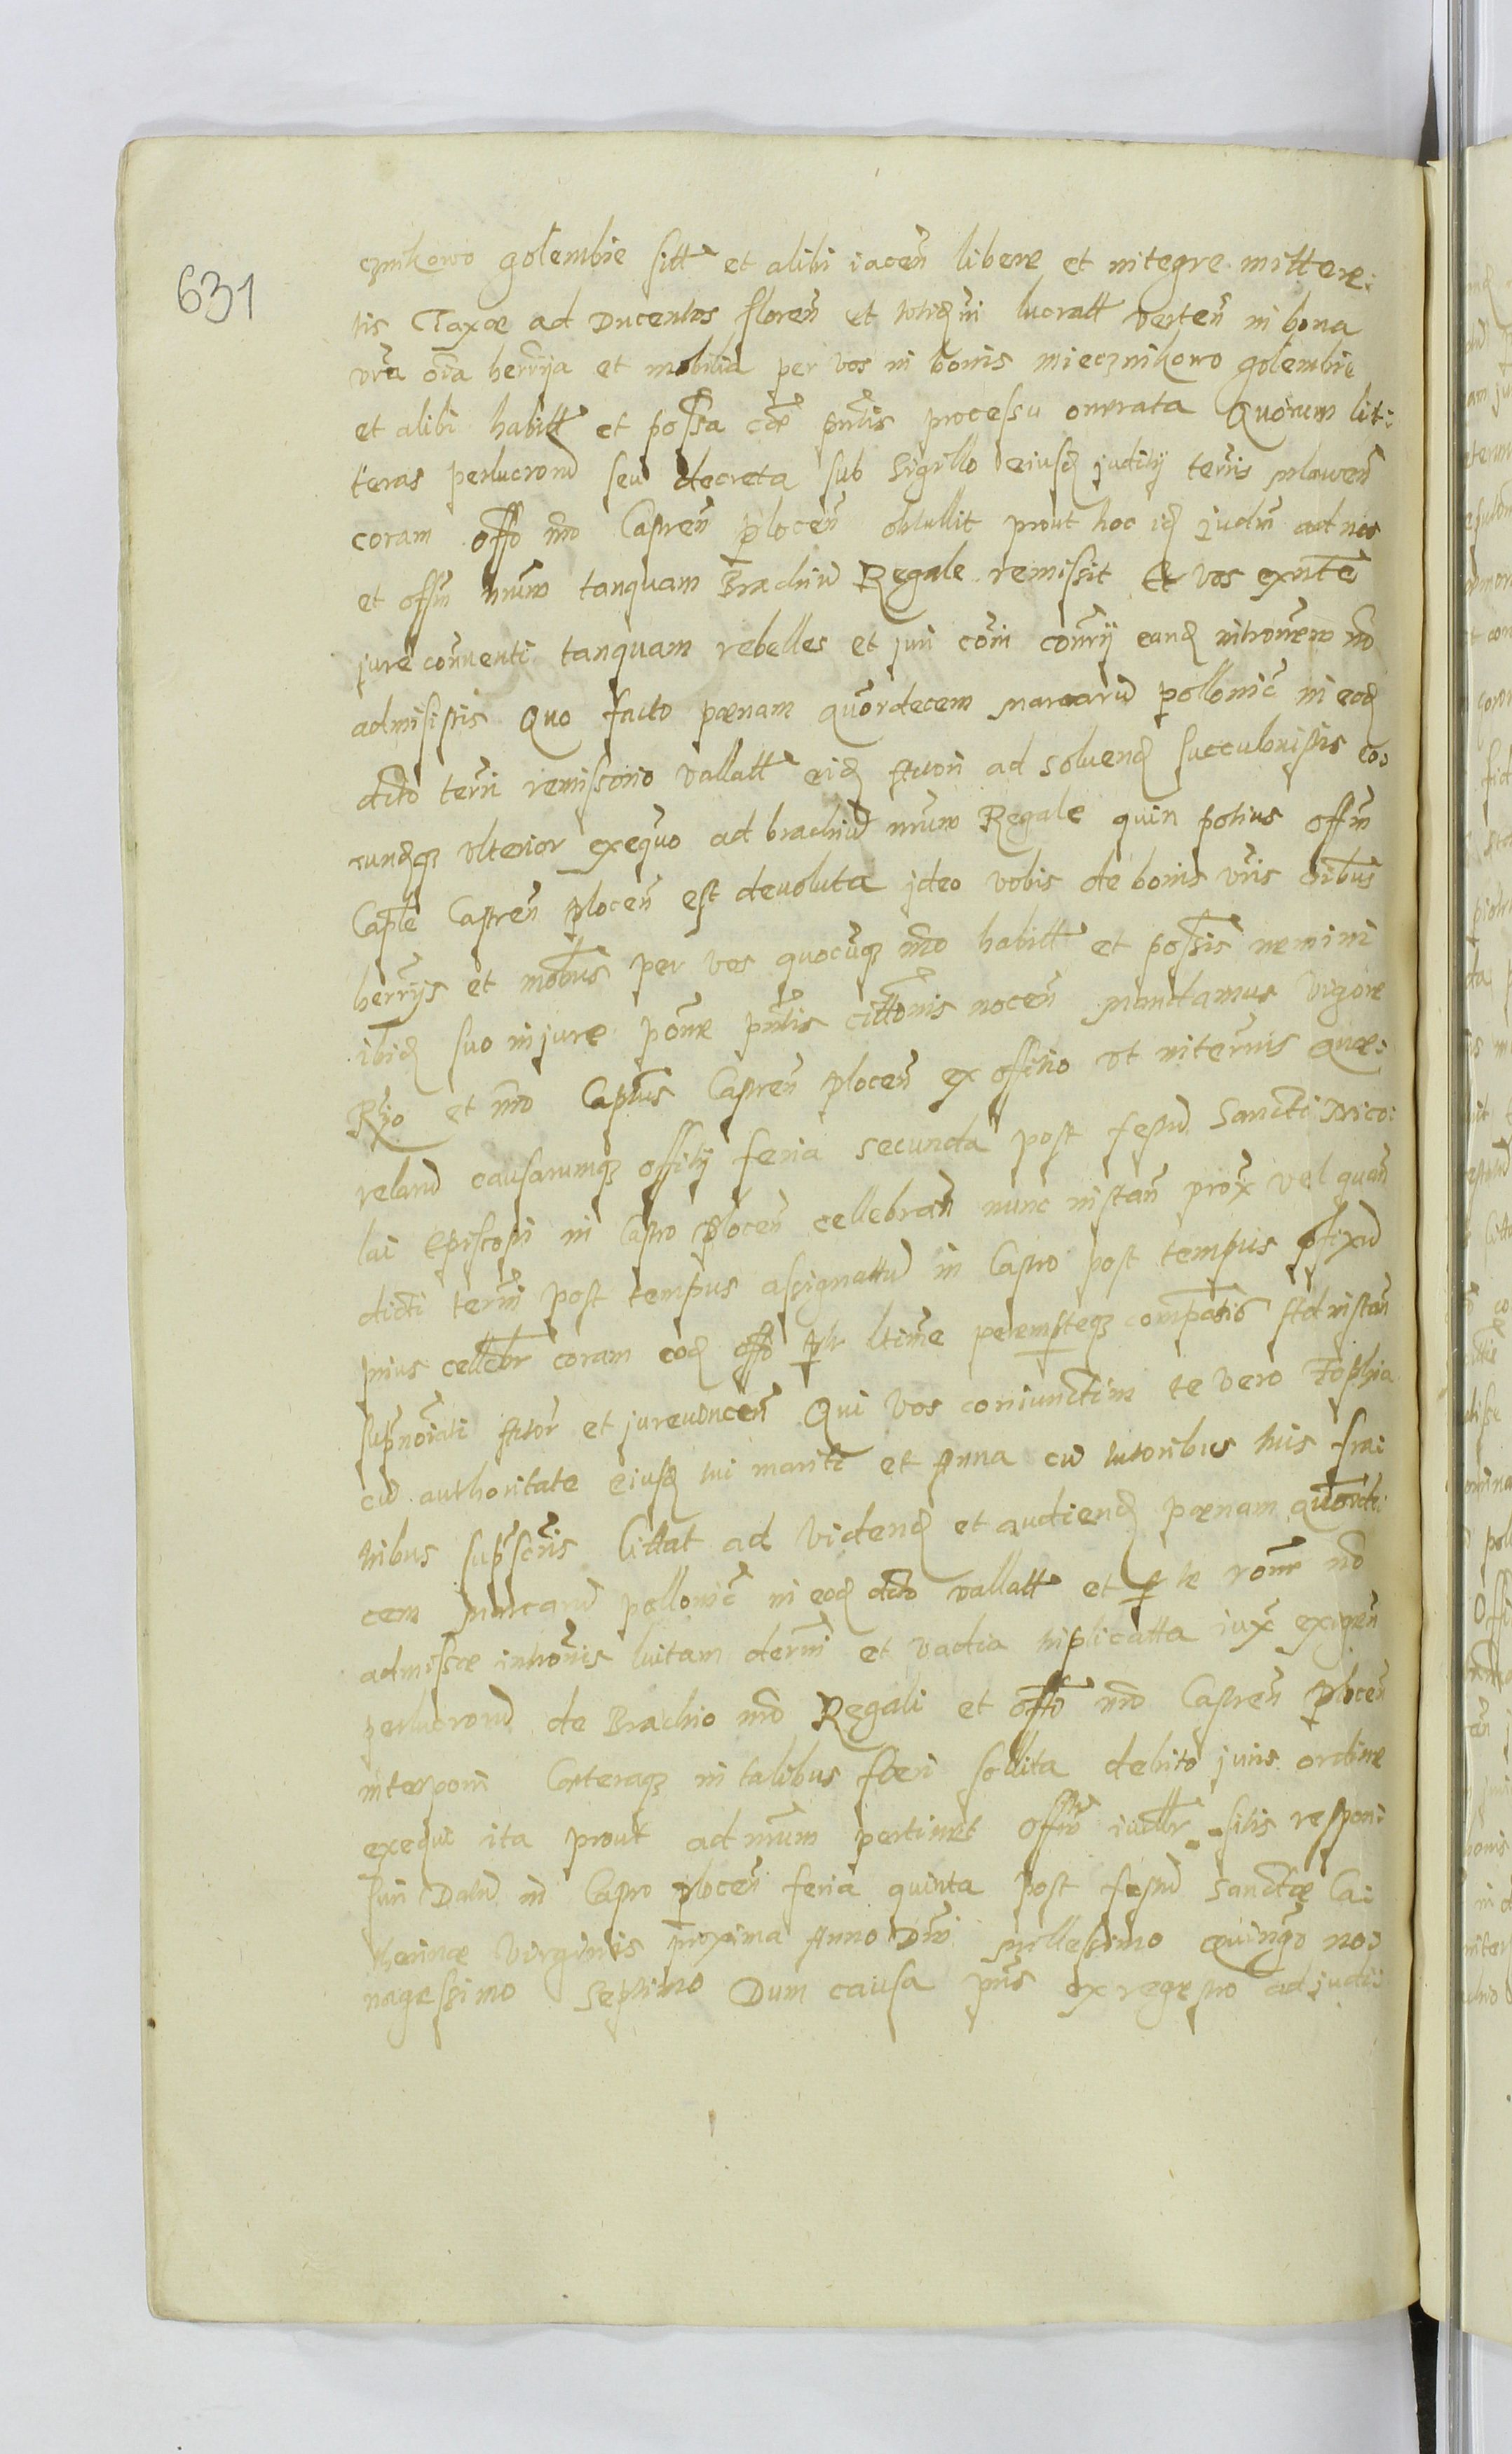 631
cznikowo golembie sitt et alibi iacen̄ libere et integre mittere:
tis Taxæ ad Ducentos floren̄ et totidem lucratt verten̄ in bona
vr̄a oīa herr̄ia et mobilia per vos in bonis miecznikowo golembie
et alibi habitt et possa pn̄tis processu onerata Quorum lit:
teras perlucrorū seu decreta sub Sigillo eiusd judity terr̄is mlawen̄
coram offo nr̄o Capren̄ plocen̄ obtullit prout hoc id judm̄ ad nos
et offm̄ nr̄um tanquam Brachiū Regale remissit Et vos exn̄te
jure conventi tanquam rebelles et juri com̄i con̄rij eand introm̄em nō
admisistis Quo facto pænam qūordecem marcarū pollonic̄ in eod
dcto terr̄i remissorio vallatt eid actori ad soluend succubuistis eo:
rundq ulterior exequo ad brachiū nr̄um Regale quin potius offm̄
Captle Capren̄ plocen̄ est devoluta jdeo vobis de bonis vr̄is oībus
herr̄ijs et mobus per vos quocūq mō habitt et possis nemini
ibid suo in jure pōne pn̄tis cittōnis nocen̄ mandamus vigore
R̄gio et nr̄o Captus Capren̄ plocen̄ ex offitio ut in term̄is quæ:
relarū causarumq offity feria secunda post festū Sancti Nico:
lai Episcopi in Castro plocen̄ cellebran̄ nunc instan̄ prox̄ vel quan̄
dicti term̄i post tempus assignattū in Castro post tempus pfixū
prius cellebr coram eod offo nr̄o per lr̄ime peremptieq compatis ad instan̄
supnōiati actor̄ et jurevincen̄ Qui vos coniunctim te vero Zophia
cū authoritate eiusd tui mariti et Anna cū tutoribus tuis fra:
tribus sup̄scr̄is Cittat ad Videnū et audiend pænam quorde:
cem marcarū pollonic̄ in eod dcto vallatt et p te rōne nō
admissæ introm̄is luitam derm̄i et vadia triplicatta iux̄ exigen̄
perlucrorū de Brachio nr̄o Regali et offo nr̄o Capren̄ plocen̄
interponi Cæteraq in talibus fieri sollita debito juris ordine
exequi ita prout ad nr̄um pertinet offm̄ iudlr sitis respon:
suri Datū in Castro plocen̄ feria quinta post festū Sanctæ Ca:
therinæ Virginis proxima Anno Dn̄i millessimo quing̃o no:
nagessimo septimo Dum causa pn̄s ex regestro ad judi: